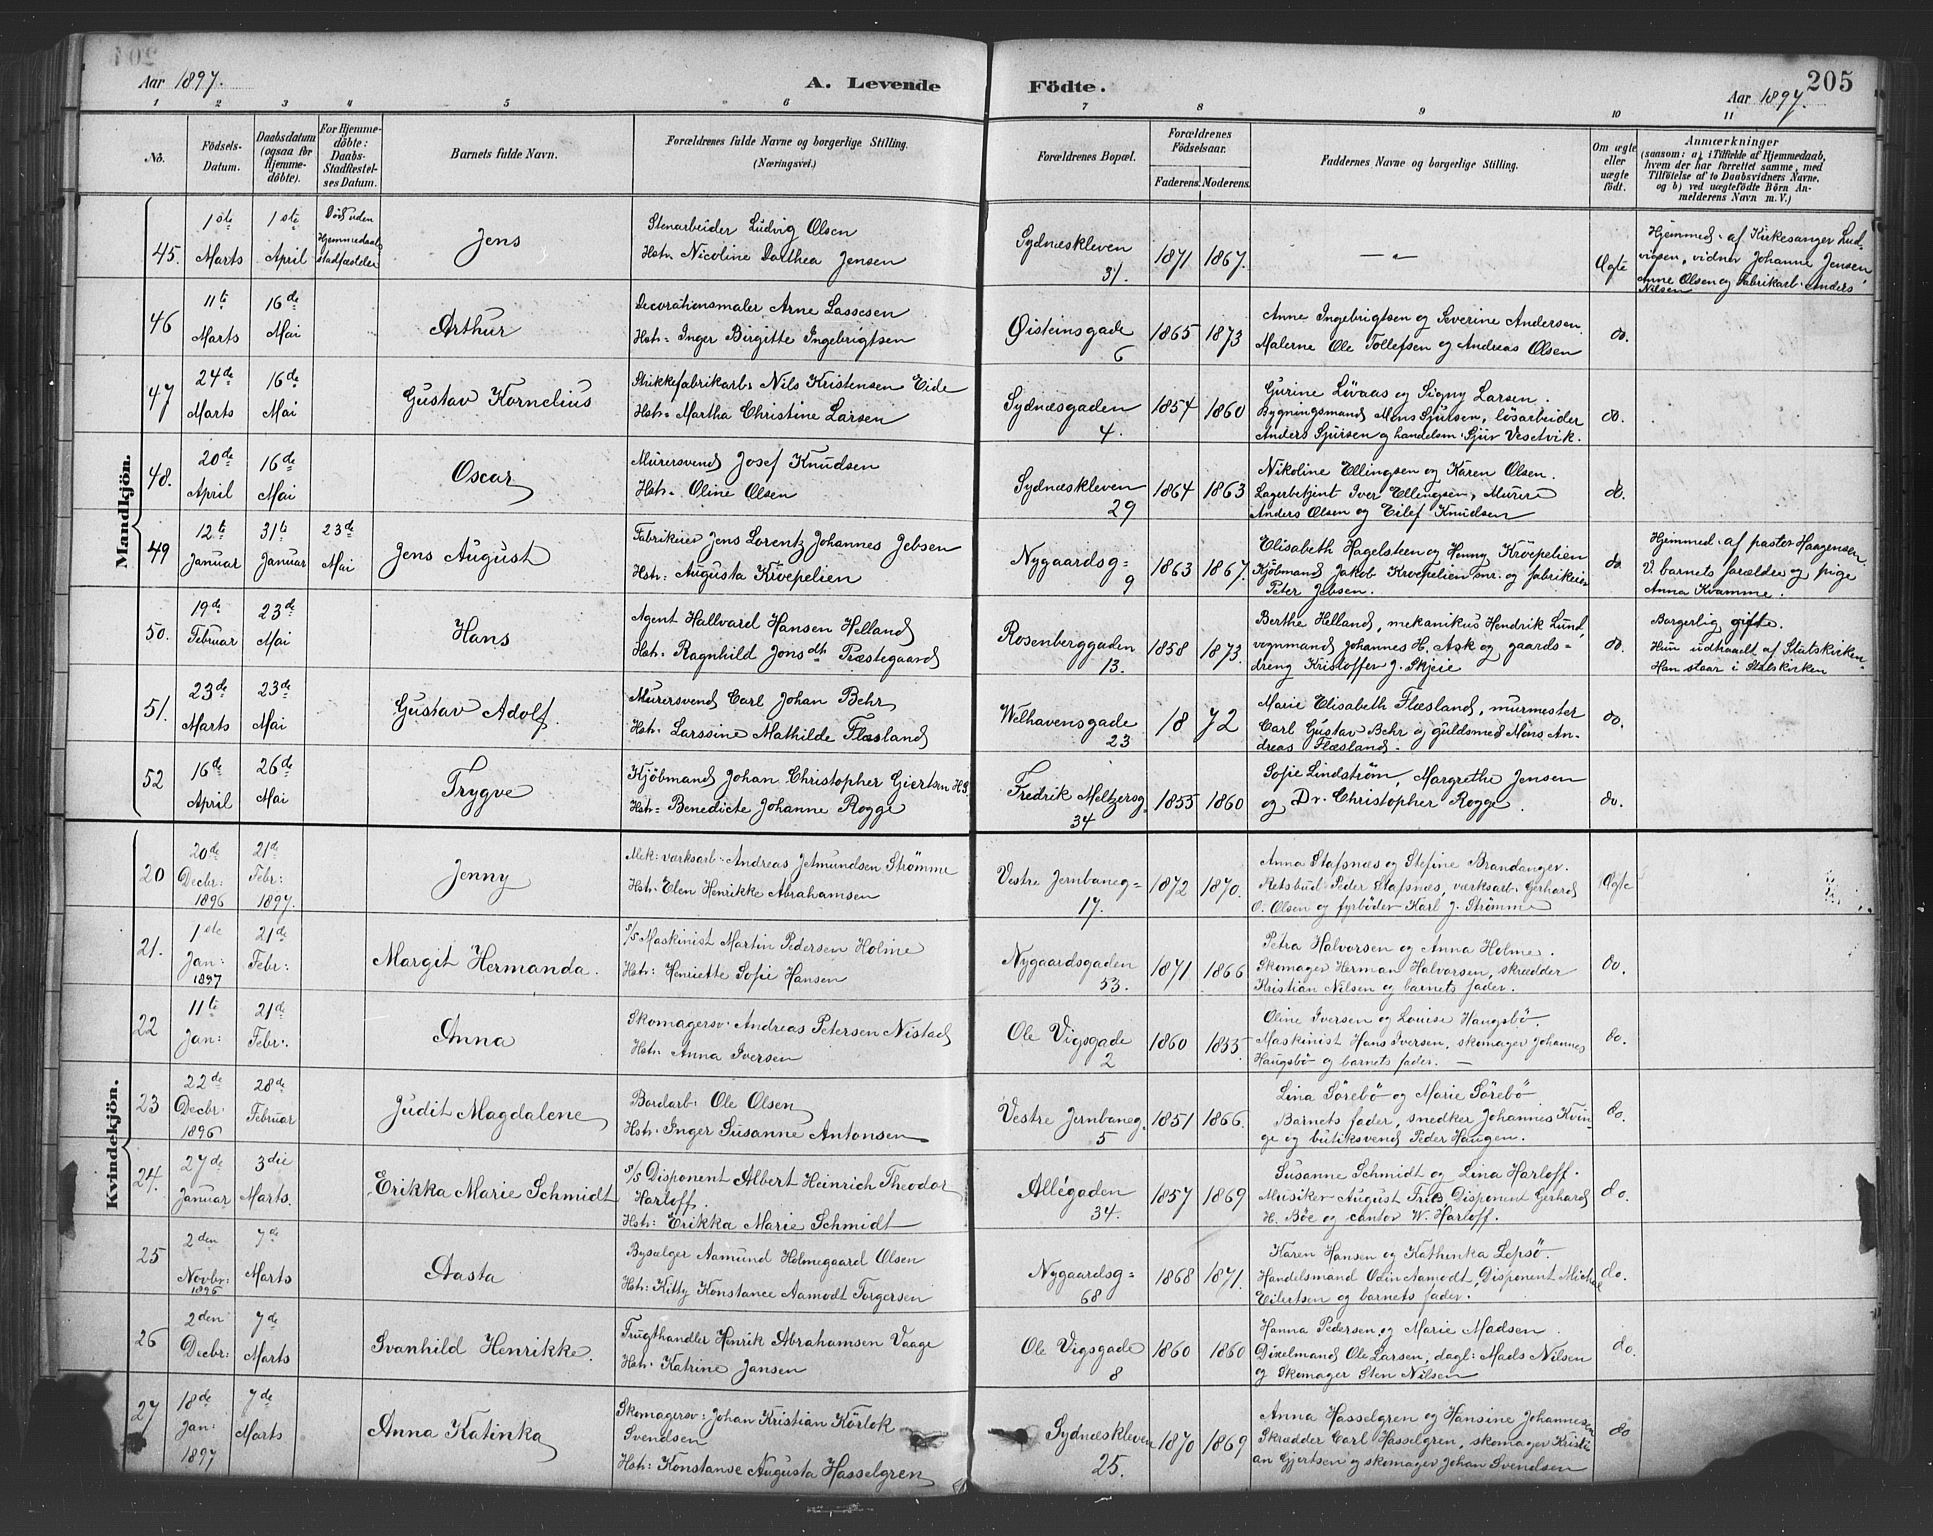 Aar 1897.
A. Levende
Födte.
205
Aar 1897.
1 2 3 4 5 6 7 8 9 10 11
Nò.
Födsels-Datum.
Daabsdatum (ogsaa for Hjemme-döbte).
For Hjemme-döbte: Daabs-Stadfæstel-ses Datum.
Barnets fulde Navn.
Forældrenes fulde Navne og borgerlige Stilling.
(Næringsvei.)
Forældrenes Bopæl.
Forældrenes Födselsaar.
Faderens. Moderens.
Faddernes Navne og borgerlige Stilling.
Om ægte eller uægte födt.
Anmærkninger
(saasom: a) i Tilfælde af Hjemmedaab, hvem der har forrettet samme, med Tilföielse af to Daabsvidners Navne, og b) ved uægtefödte Börn An-melderens Navn m. V.)
Mandkjön.
45. 1ste Marts 1ste April Död uden Hjemmedaabs stadfæstelse
Jens
Stenarbeider Ludvig Olsen
Hstr. Nicoline Dorthea Jensen
Sydnæskleven 31.
1871 1867.
— „ —
Ægte
Hjemmed. af Kirkesanger Lud-
vigsen, vidner Johanne Jensen
Anne Olsen og Fabrikarb. Anders
Nilsen
46 11te Marts 16de Mai
Arthur
Decorationsmaler Arne Lassesen
Hstr. Inger Birgitte Ingebrigtsen
Øisteinsgade 6
1865 1873
Anne Ingebrigtsen og Severine Andersen.
Malerne Ole Tollefsen og Andreas Olsen
do.
47 24de Marts 16de Mai
Gustav Kornelius
Strikkefabrikarb. Nils Kristensen Eide
Hstr. Martha Christine Larsen
Sydnæsgaden 4.
1854 1860
Gurine Lövaas og Signy Larsen.
Bygningsmand Mons Sjursen, lösarbeider
Anders Sjursen og handelsm. Sjur Vesetvik.
do.
48. 20de April 16de Mai
Oscar
Murersvend Josef Knudsen
Hstr. Oline Olsen
Sydnæskleven 29
1864 1863
Nikoline Ellingsen og Karen Olsen.
Lagerbetjent Iver Ellingsen, Murere
Anders Olsen og Eilef Knudsen
do.
49 12te Januar 31te Januar 23de Mai
Jens August
Fabrikeier Jens Lorentz Johannes Jebsen
Hstr. Augusta Krøepelien
Nygaardsg= 9
1863 1867.
Elisabeth Hagelsteen og Henny Krøepelien
Kjöbmand Jakob Krøepelien snr. og fabrikeier
Peter Jebsen.
do.
Hjemmed. af pastor Haagensen
V. barnets forældre og pige
Anna Kvamme.
50. 19de Februar 23de Mai
Hans
Agent Hallvard Hansen Helland
Hstr. Ragnhild Jonsdt Præstegaard
Rosenberggaden 13.
1858 1873.
Berthe Helland, mekanikus Hendrik Lund,
vognmand Johannes H. Ask og gaards=
dreng Kristoffer J. Skjeie
do.
Borgerlig gifte.
Hun udtraadt af Statskirken
Han staar i Statskirken
51. 23de Marts 23de Mai
Gustav Adolf.
Murersvend Carl Johan Behr
Hstr. Larssine Mathilde Flæsland
Welhavensgade 23
18 72
Marie Elisabeth Flæsland, murmester
Carl Gustav Behr og guldsmed Mons An-
dreas Flæsland.
do.
52 16de April 26de Mai
Trygve
Kjöbmand Johan Christopher Giertsen H.S.
Hstr. Benedicte Johanne Rogge
Fredrik Meltzersg. 34
1855 1860
Sofie Lindström, Margrethe Jensen
og Dr. Christopher Rogge.
do.
Kvindekjön.
20 20de Decbr. 1896 21de Febr: 1897.
Jenny
Mek: værksarb. Andreas Jetmundsen Strömme
Hstr. Elen Henrikke Abrahamsen
Vestre Jernbaneg= 17.
1872 1870.
Anna Stafsnæs og Stefine Brandanger.
Retsbud Peder Stafsnæs, værksarb. Gerhard
O. Olsen og fyrböder Karl J. Strömme
Ægte
21. 1ste Jan: 1897 21de Febr:
Margit Hermanda.
S/S Maskinist Martin Pedersen Holme
Hstr: Henriette Sofie Hansen
Nygaardsgaden 53.
1871 1866
Petra Halvorsen og Anna Holme.
Skomager Herman Halvorsen, skrædder
Kristian Nilsen og barnets fader.
do.
22 11te Jan: 21de Febr.
Anna
Skomagersv. Andreas Petersen Nistad
Hstr. Anna Iversen
Ole Vigsgade 2
1860 1855.
Oline Iversen og Louise Haugsbö.
Maskinist Hans Iversen, skomager Johannes
Haugsbö og barnets fader. —
do.
23 22de Decbr. 1896 28de Februar
Judit Magdalene
Bordarb. Ole Olsen
Hstr. Inger Susanne Antonsen
Vestre Jernbaneg. 5
1851 1866.
Lina Sörebö og Marie Sörebö
Barnets fader, snedker Johannes Kvin-
ge og butiksvend Peder Haugen.
do.
24. 27de Januar 3die Marts.
Erikka Marie Schmidt
S/S Disponent Albert Heinrich Theodor
Harloff.
Hstr: Erikka Marie Schmidt
Allégaden 34.
1857 1869
Susanne Schmidt og Lina Harloff.
Musiker August Fries Disponent Gerhard
H. Böe og cantor W. Harloff.
do.
25 2den Novbr: 1896 7de Marts
Aasta
Bysælger Aamund Holmegaard Olsen
Hstr: Kitty Konstance Aamodt Torgersen
Nygaardsg= 68
1868 1871.
Karen Hansen og Kathinka Lepsö.
Handelsmand Odin Aamodt, Disponent Michael
Eilertsen og barnets fader.
do.
26 2den Decbr: 7de Marts
Svanhild Henrikke.
Frugthandler Henrik Abrahamsen Vaage
Hstr. Katrine Jansen
Ole Vigsgade 8
1860 1860
Hanna Pedersen og Marie Madsen.
Dixelmand Ole Larsen, dagl: Mads Nilsen
og Skomager Sten Nilsen
do.
27 18de Jan: 1897 7de Marts
Anna Katinka
Skomagersv: Johan Kristian Körlek
Svendsen
Hstr: Konstanse Augusta Hasselgren
Sydnæskleven 25.
1870 1869
Anna Hasselgren og Hansine Johannesen
Skrædder Carl Hasselgren, skomager Kristi
an Gjertsen og skomager Johan Svendsen
do